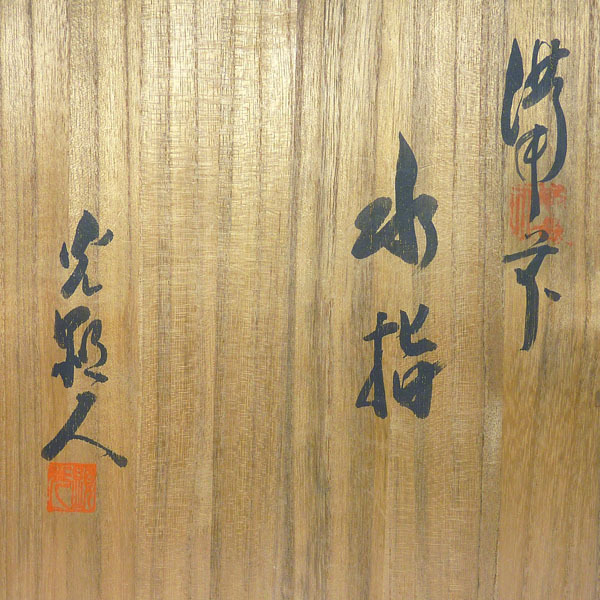 備前
水指
光
人